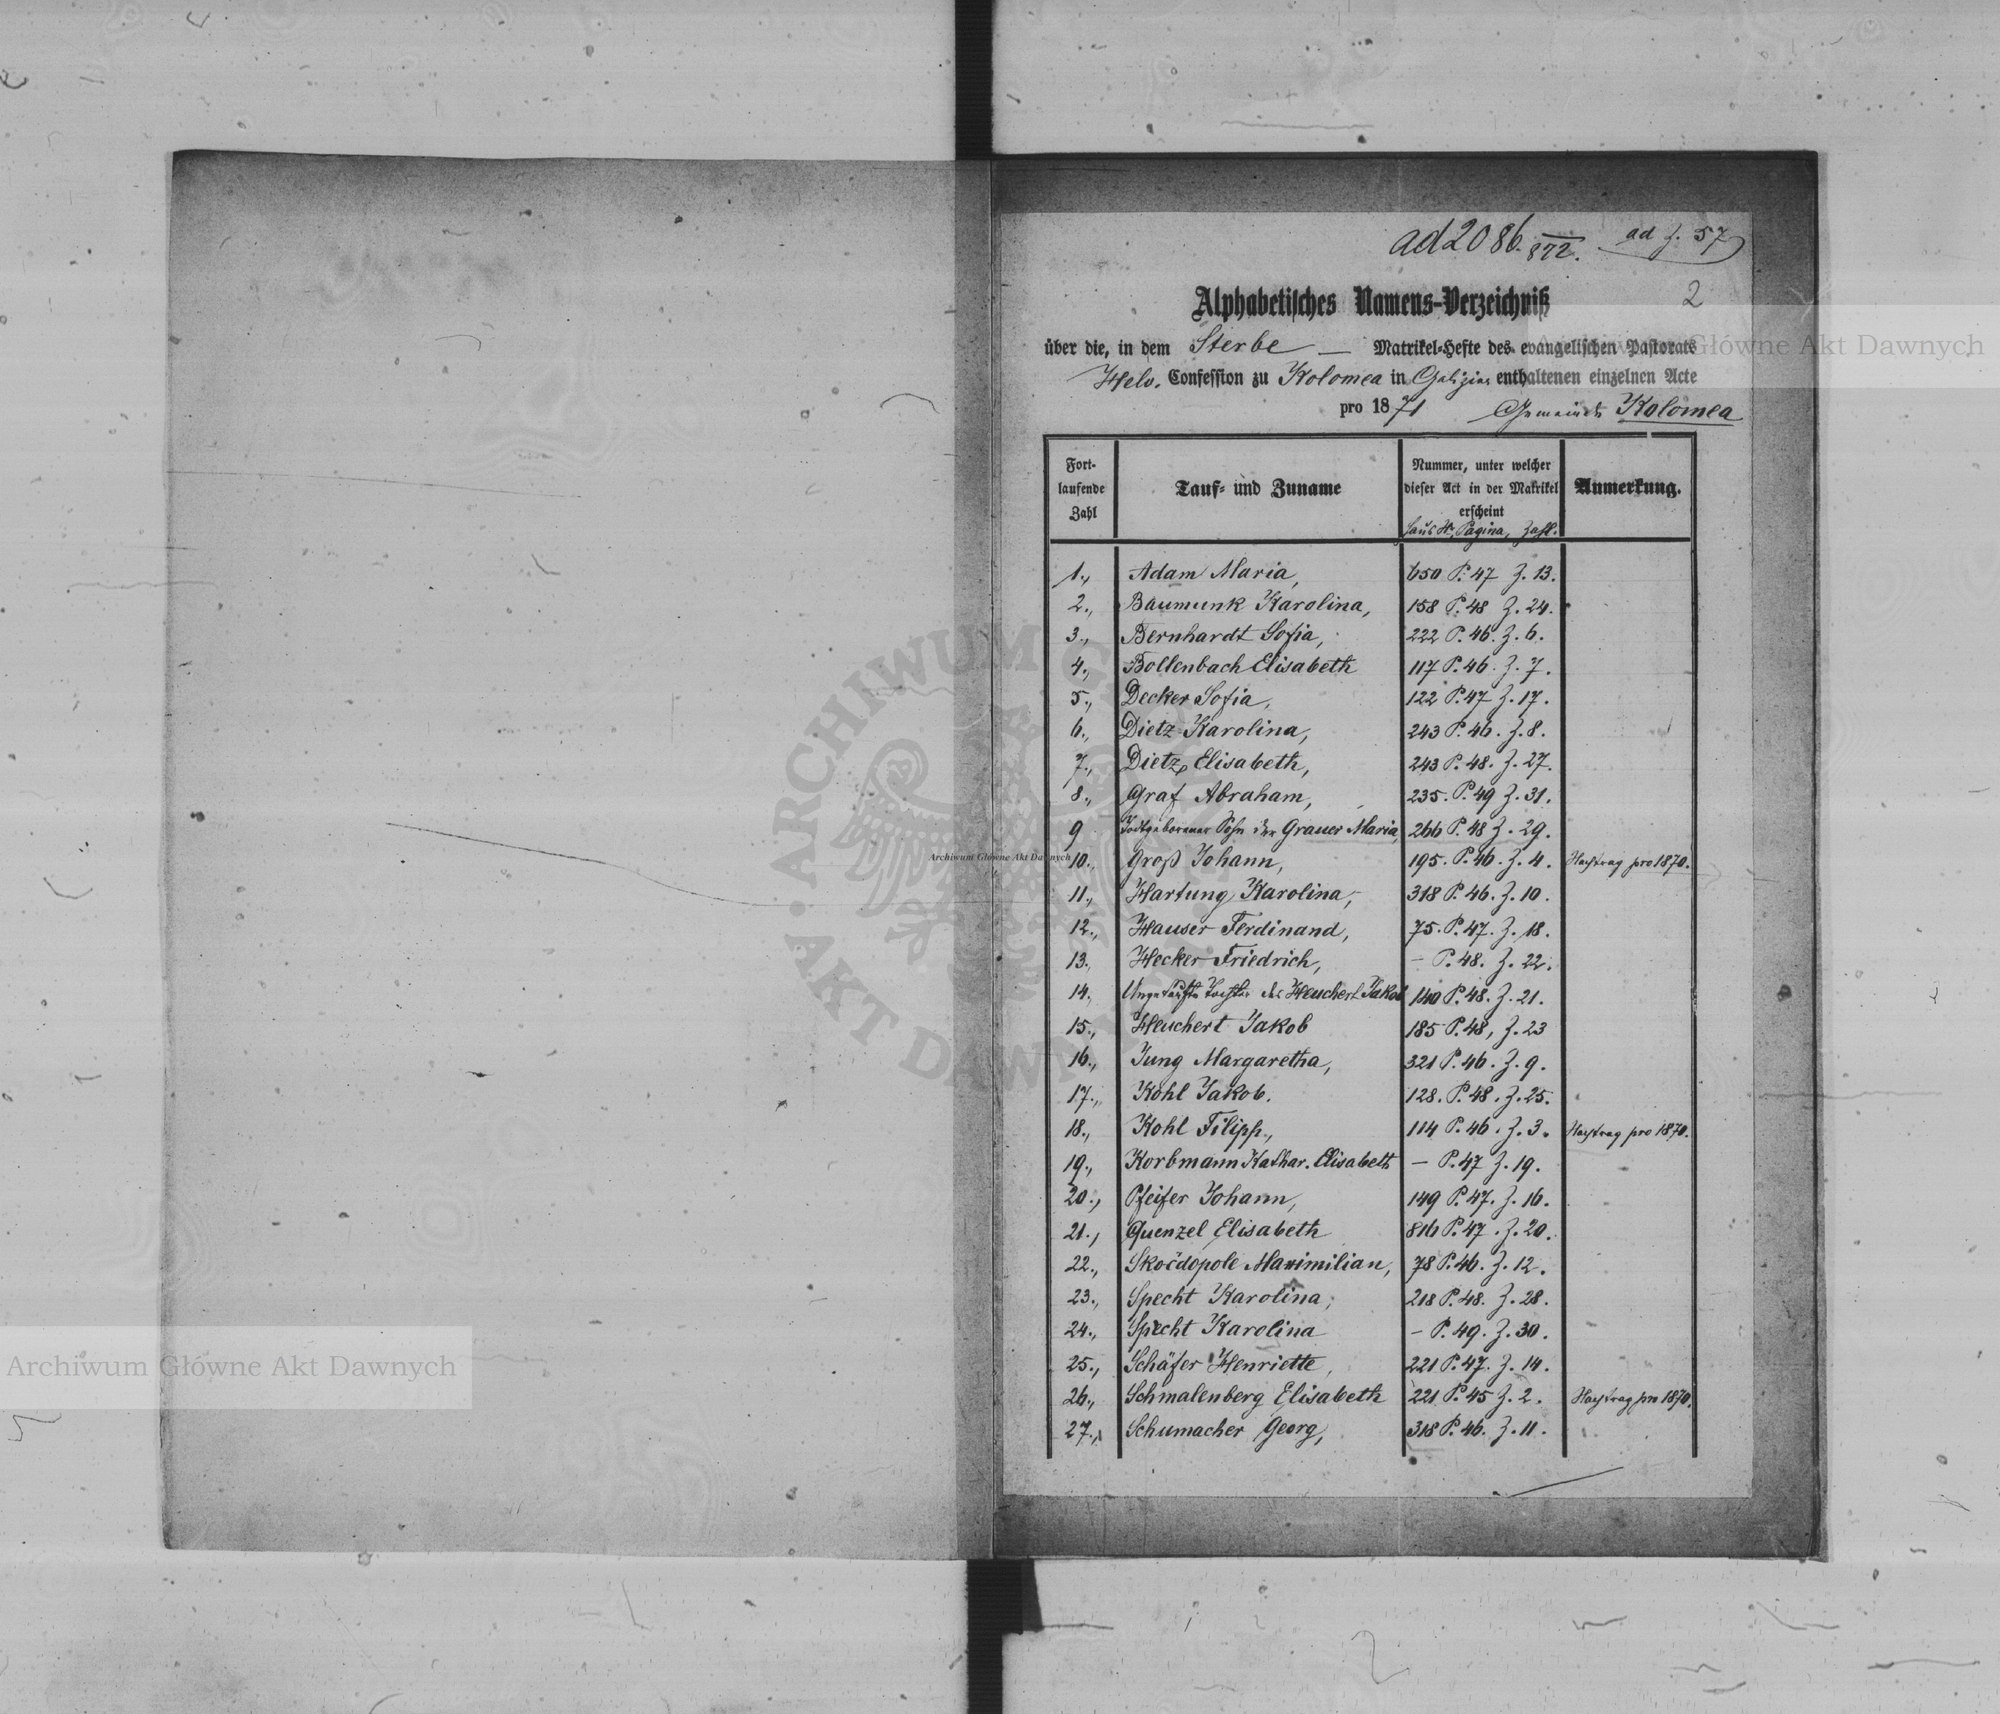 ad 2086. 872. ad Z. 57
2
Alphabetisches Namens-Verzeichniß
über die, in dem Sterbe — Matrikel-Hefte des evangelischen Pastorats
Helv. Confession zu Kolomea in Galizien enthaltenen einzelnen Acte
pro 1871 Gemeinde Kolomea
Fort-laufende Zahl | Tauf- und Zuname | Nummer, unter welcher dieser Act in der Matrikel erscheint Haus Nr. Pagina, Zahl. | Anmerkung.
1., Adam Maria, 650 P. 47 Z. 13.
2., Baumunk Karolina, 158 P. 48 Z. 24.
3., Bernhardt Sofia, 222 P. 46. Z. 6.
4., Bollenbach Elisabeth 117 P. 46. Z. 7.
5., Decker Sofia, 122 P. 47 Z. 17.
6., Dietz Karolina, 243 P. 46. Z. 8.
7., Dietz Elisabeth, 243 P. 48. Z. 27.
8., Graf Abraham, 235. P. 49 Z. 31.
9 Todtgeborener Sohn der Grauer Maria, 266 P. 48 Z. 29.
10., Groß Johann, 195. P. 46. Z. 4. Nachtrag pro 1870.
11., Hartung Karolina, 318 P. 46. Z. 10.
12., Hauser Ferdinand, 75. P. 47. Z. 18.
13., Hecker Friedrich, – P. 48. Z. 22.
14., Ungetaufte Tochter des Heuchert Jakob 140 P. 48. Z. 21.
15., Heuchert Jakob 185 P. 48, Z. 23
16., Jung Margaretha, 321 P. 46. Z. 9.
17., Kohl Jakob. 128. P. 48. Z. 25.
18., Kohl Filipp., 114 P. 46. Z. 3. Nachtrag pro 1870.
19., Korbmann Kathar. Elisabeth – P. 47 Z. 19.
20., Pfeifer Johann, 149 P. 47. Z. 16.
21., Quenzel Elisabeth 816 P. 47. Z. 20.
22., Skočdopole Maximilian, 78 P. 46. Z. 12.
23., Specht Karolina, 218 P. 48. Z. 28.
24., Specht Karolina – P. 49. Z. 30.
25., Schäfer Henriette, 221 P. 47. Z. 14.
26., Schmalenberg Elisabeth 221 P. 45 Z. 2. Nachtrag pro 1870.
27., Schumacher Georg, 318 P. 46. Z. 11.
Archiwum Główne Akt Dawnych
Archiwum Główne Akt Dawnych
Archiwum Główne Akt Dawnych